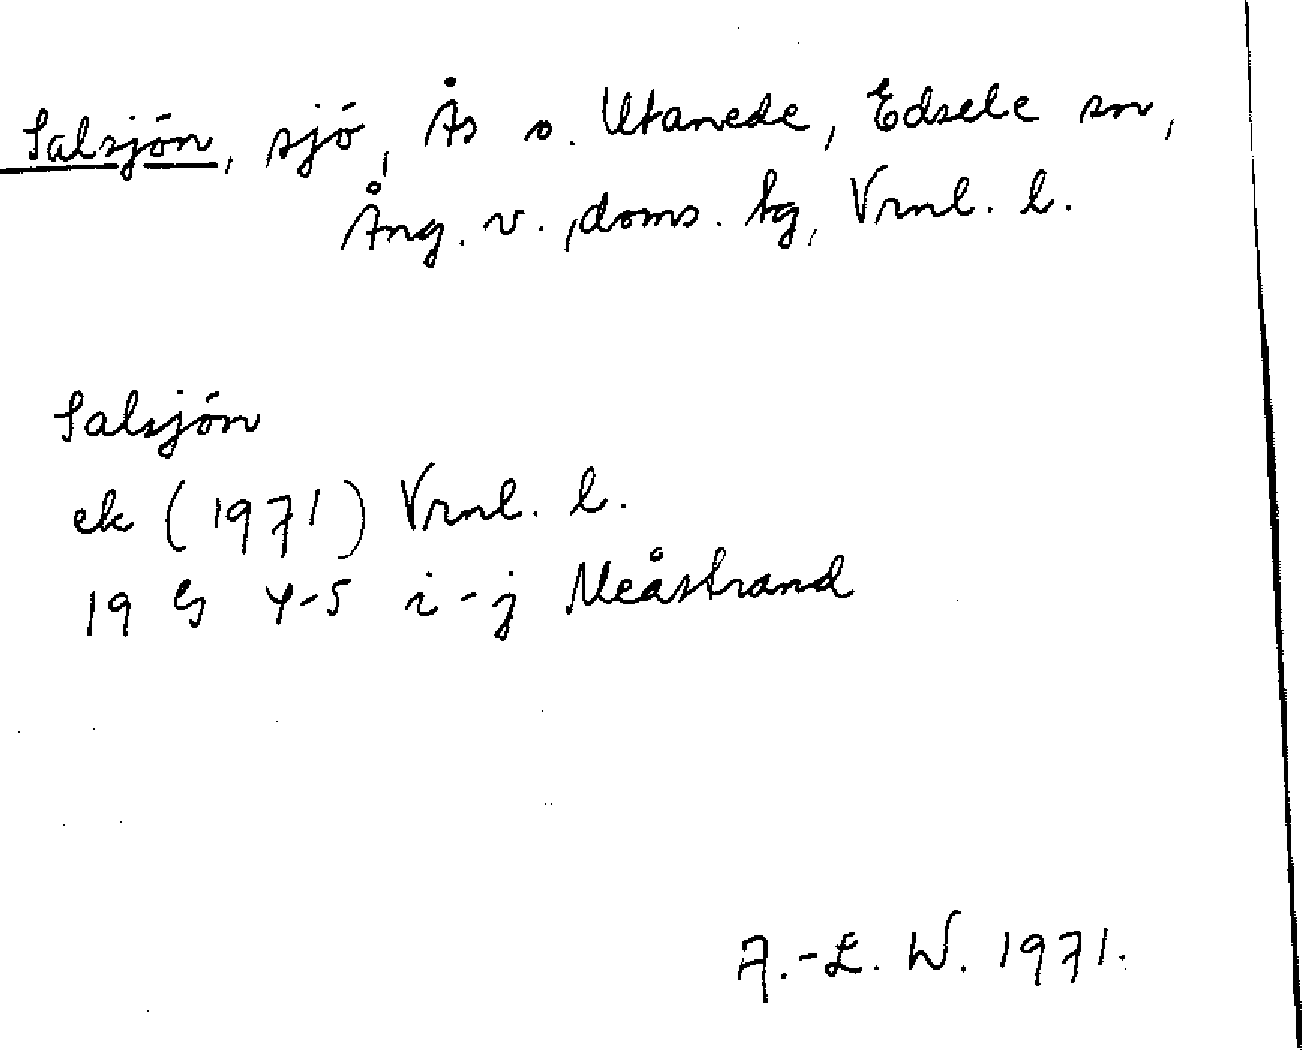 Salsjön, sjö, Ås o. Utanede, Edsele sn,
Ång. v. doms. tg, Vrnl. l.
Salsjön
ek (1971) Vrnl. l.
19 G 4-5 i-j Meåstrand
A.-L. W. 1971.